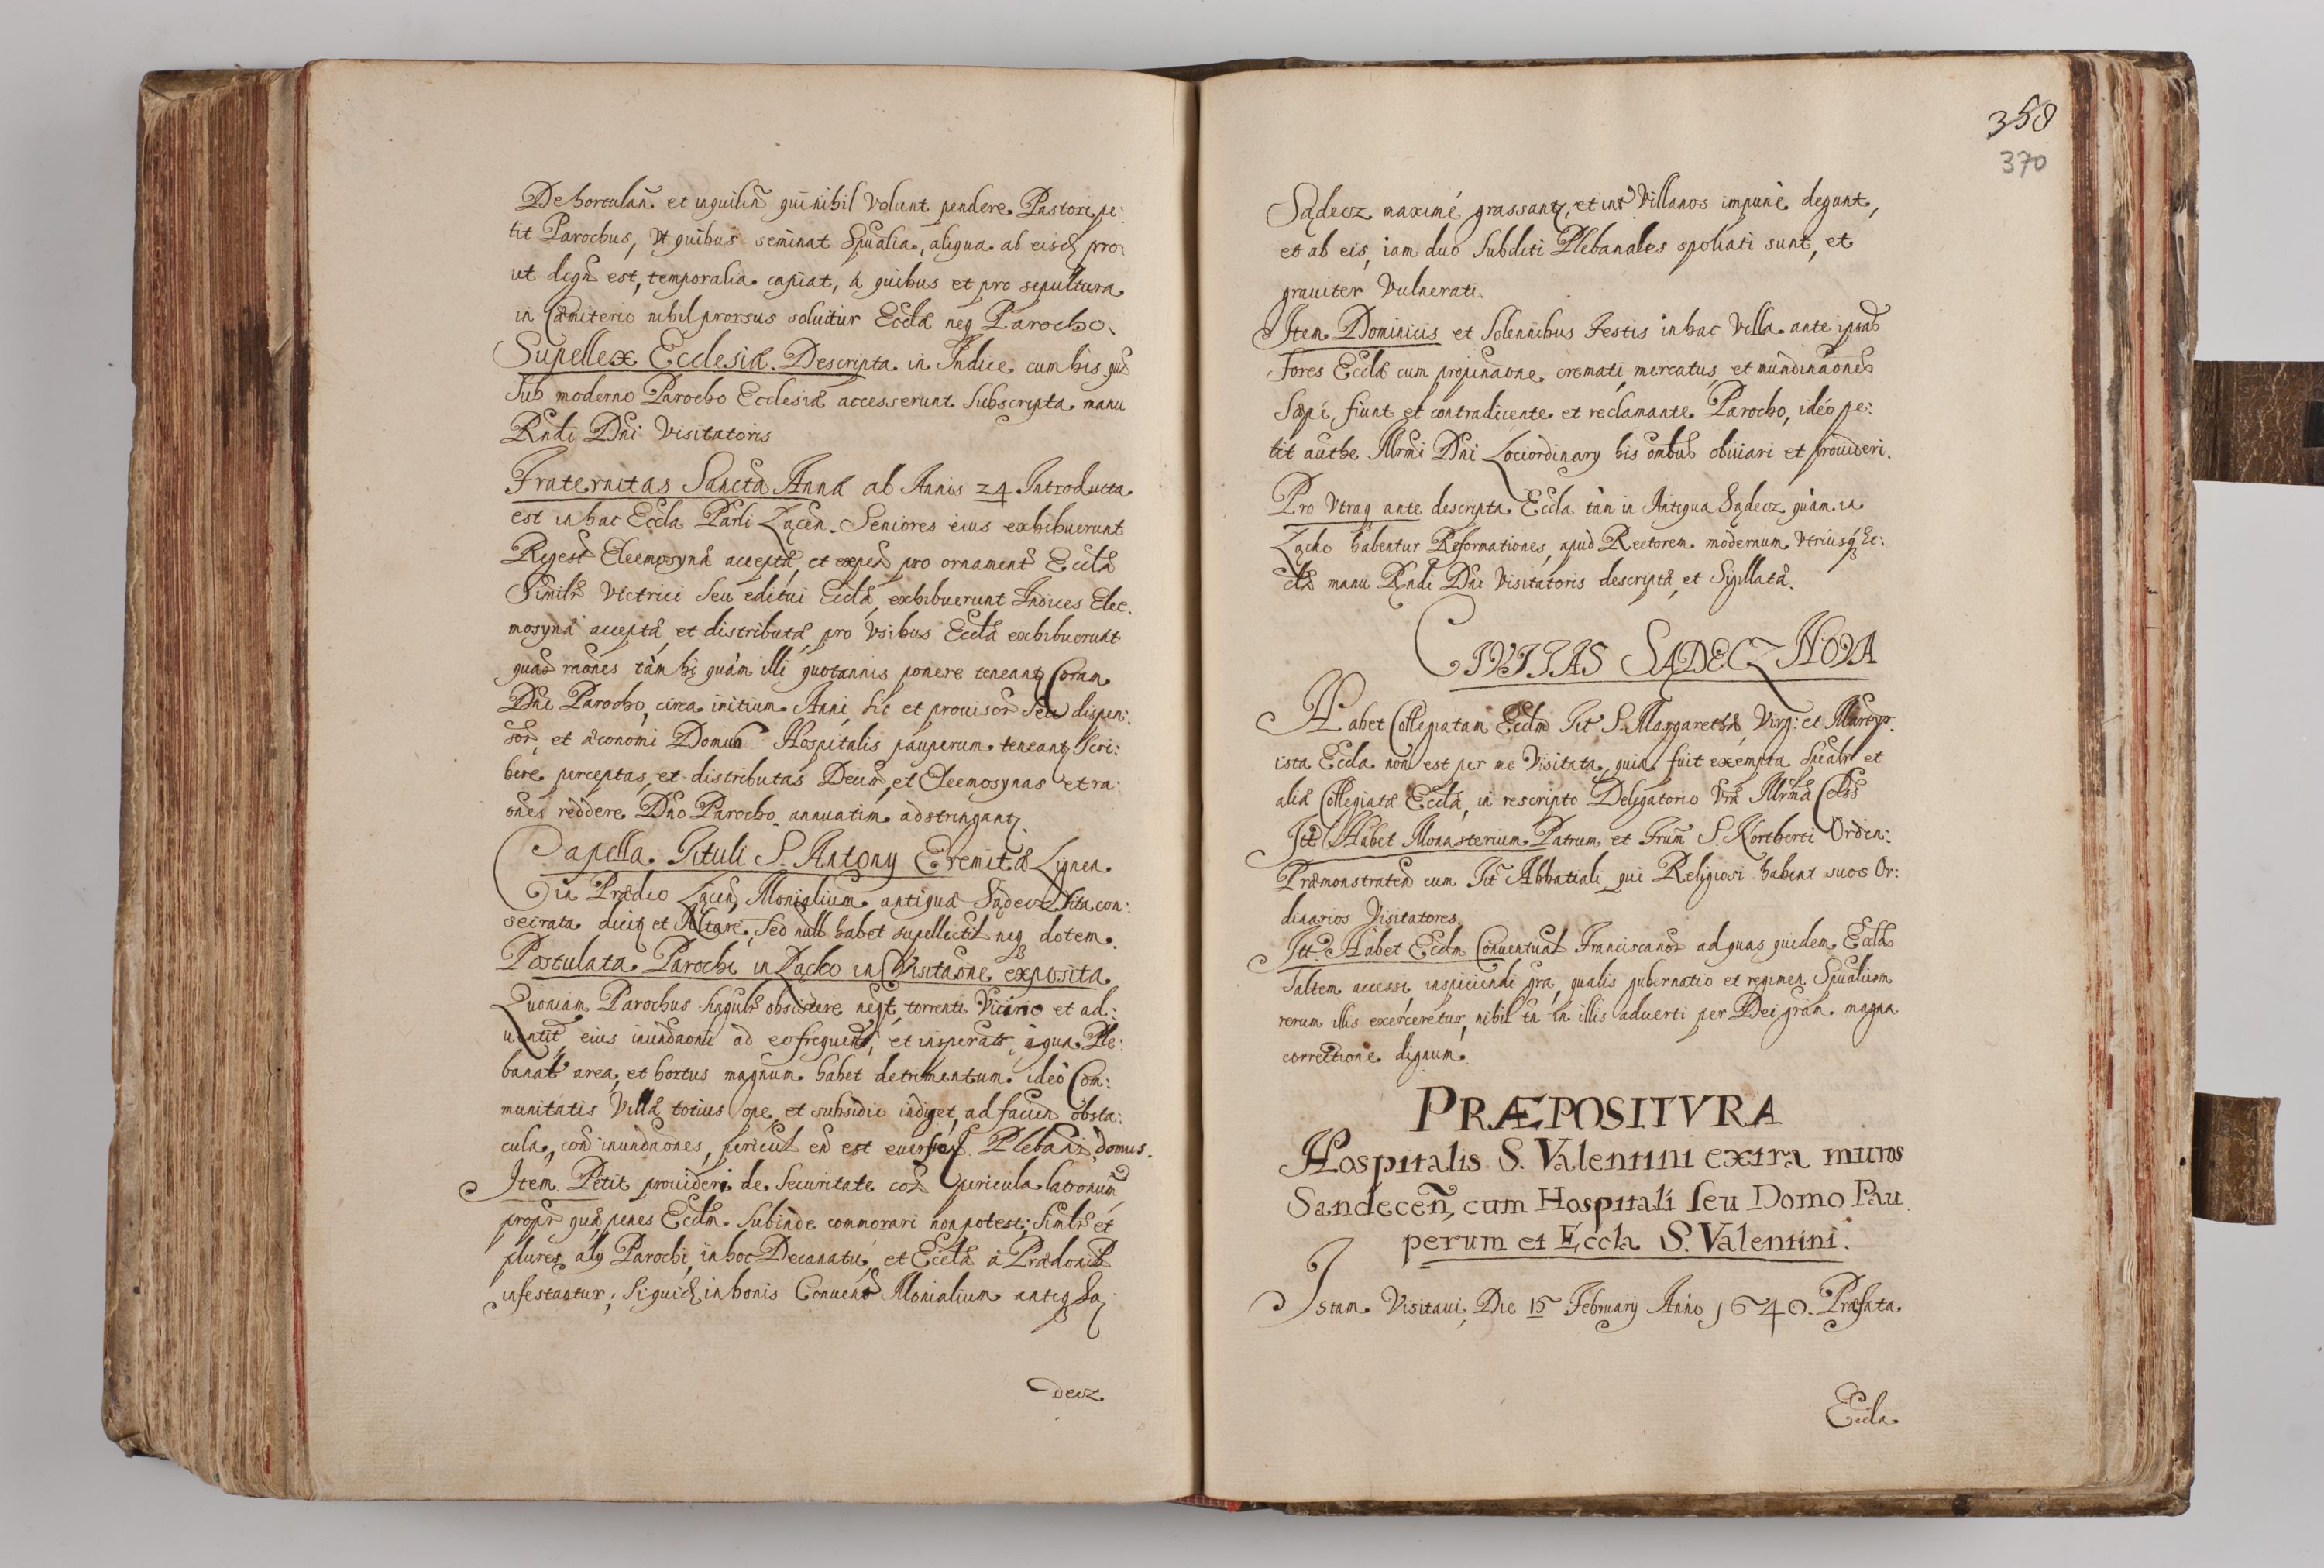 De hortulan̄ et inquilin̄ qui nihil Volunt pendere Pastori, pe:
tit Parochus, Vt quibus seminat Spualia, aliqua ab eisd pro:
ut dign est, temporalia capiat, à quibus et pro sepultura
in Cæmiterio nihil prorsus soluitur Ecclæ neq Parocho.
Supellex Ecclesiæ Descripta in Indice cum his quæ
sub moderno Parocho Ecclesiæ accesserunt subscripta manu
Rndi Dni Visitatoris
Fraternitas Sanctæ Annæ ab Annis 24 Introducta
est in hac Eccla Parli Łącen. Seniores eius exhibuerunt
Regest Eleemosynæ acceptæ, et expen pro ornament Ecclæ
Similr Victrici seu editui Ecclæ exhibuerunt Indices Elee:
mosynæ acceptæ, et distributæ pro Vsibus Ecclæ exhibuerunt
quas raones tàm hi quàm illi quotannis ponere teneant Coram
Dno Parocho, circa initium Anni, sic et prouisor seu dispen:
sor, et æconomi Domus Hospitalis pauperum teneant scri:
bere perceptas, et distributas Decim, et Eleemosynas et ra:
ones reddere Dno Parocho annuatim adstringant.
Capella Tituli S. Antony Eremitæ Lignea
in Prædio Łącen, Monialium antiquæ Sądecz sita con:
secrata dicit et Altare, sed null habet supellectil neq dotem.
Postulata Parochi in Łącko in Visitaone exposita
Quoniam Parochus singulr obsistere neqt, torrenti Vicino et ad:
uentit eius inundaoni ad eo frequent, et insperat, à qua Ple:
banal area, et hortus magnum habet detrimentum ideò Com:
munitatis Villæ totius ope et subsidio indiget, ad facien obsta:
cula, con inundaones, pericul en est euersionis Plebani domus.
Item Petit prouideri de Securitate con pericula latronum
propr quæ penes Ecclm subinde commorari non potest, similr et
plures aly Parochi, in hoc Decanatu, et Ecclæ à Prædonib
infestantur, siquid in bonis Conuent Monialium antiq Są
decz

358
370
Sądecz maximè grassant, et int Villanos impunè degunt,
et ab eis, iam duo Subditi Plebanales spoliati sunt, et
grauiter Vulnerati.
Item Dominicis et Solennibus Festis in hac Villa ante ipsas
Fores Ecclæ cum propinaone cremati mercatus, et nundinaones
Sæpè fiunt et contradicente et reclamante Parocho, ideò pe:
tit authe Illrmi Dni Lociordinary his omībus obuiari et prouideri.
Pro Vtraq ante descripta Eccla tàm in Antiqua Sądecz quàm in
Łącko habentur Reformationes, apud Rectorem modernum Vtriusq Ec:
clæ manu Rndi Dni Visitatoris descriptæ, et Sigillatæ.
CIVITAS SĄDECZ NOVA
Habet Collegiatam Ecclm Tit S. Margarethæ, Virg: et Martyr.
ista Eccla non est per me Visitata, quia fuit exempta Spealr et
aliæ Collegiatæ Ecclæ, in rescripto Delegatorio Vræ Illrmæ Cels
Itē Habet Monasterium Patrum et Frum S. Nortberti Ordin:
Præmonstraten cum Tit Abbatiali qui Religiosi habent suos Or:
dinarios Visitatores.
Itē Habet Ecclm Conuentual Franciscanor ad quas quidem Ecclas
Saltem accessi, inspiciendi gra, qualis gubernatio et regimen Spualium
rerum illis exerceretur, nihil tn in illis aduerti per Dei gram magna
correctione dignum.
PRÆPOSITVRA
Hospitalis S. Valentini extra muros
Sandecen̄, cum Hospitali seu Domo Pau
perum et Eccla S. Valentini.
Istam Visitaui, Die 15 February Anno 1640. Præfata
Eccla